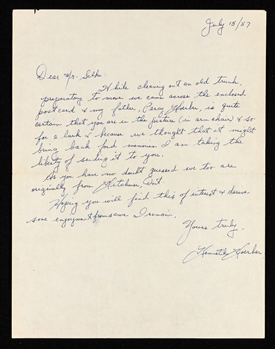 July 15/57
Dear Mr.
While cleaning out an old trunk,
preparatory to move we came across the enclosed
postcard & my father, Percy is quite
certain that you are in the picture (in arm chair) & so
for a lark & because we thought that it might
bring back fond memories I am taking the
liberty of sending it to you.
As you have no doubt guessed we too are
originally from Kitchener, Ont
Hoping you will find this of interest & derive
some enjoyment from same I remain.
Yours truly,
Kenneth